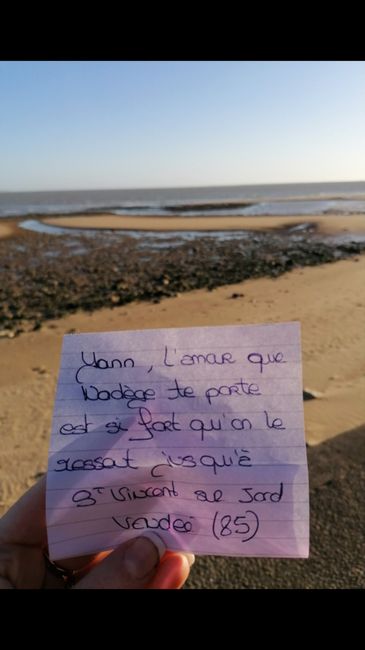 Yann, l'amour que
Nadège te porte
est si fort qu'on le
ressent jusqu'à
St Vincent sur Jard
Vendée (85)